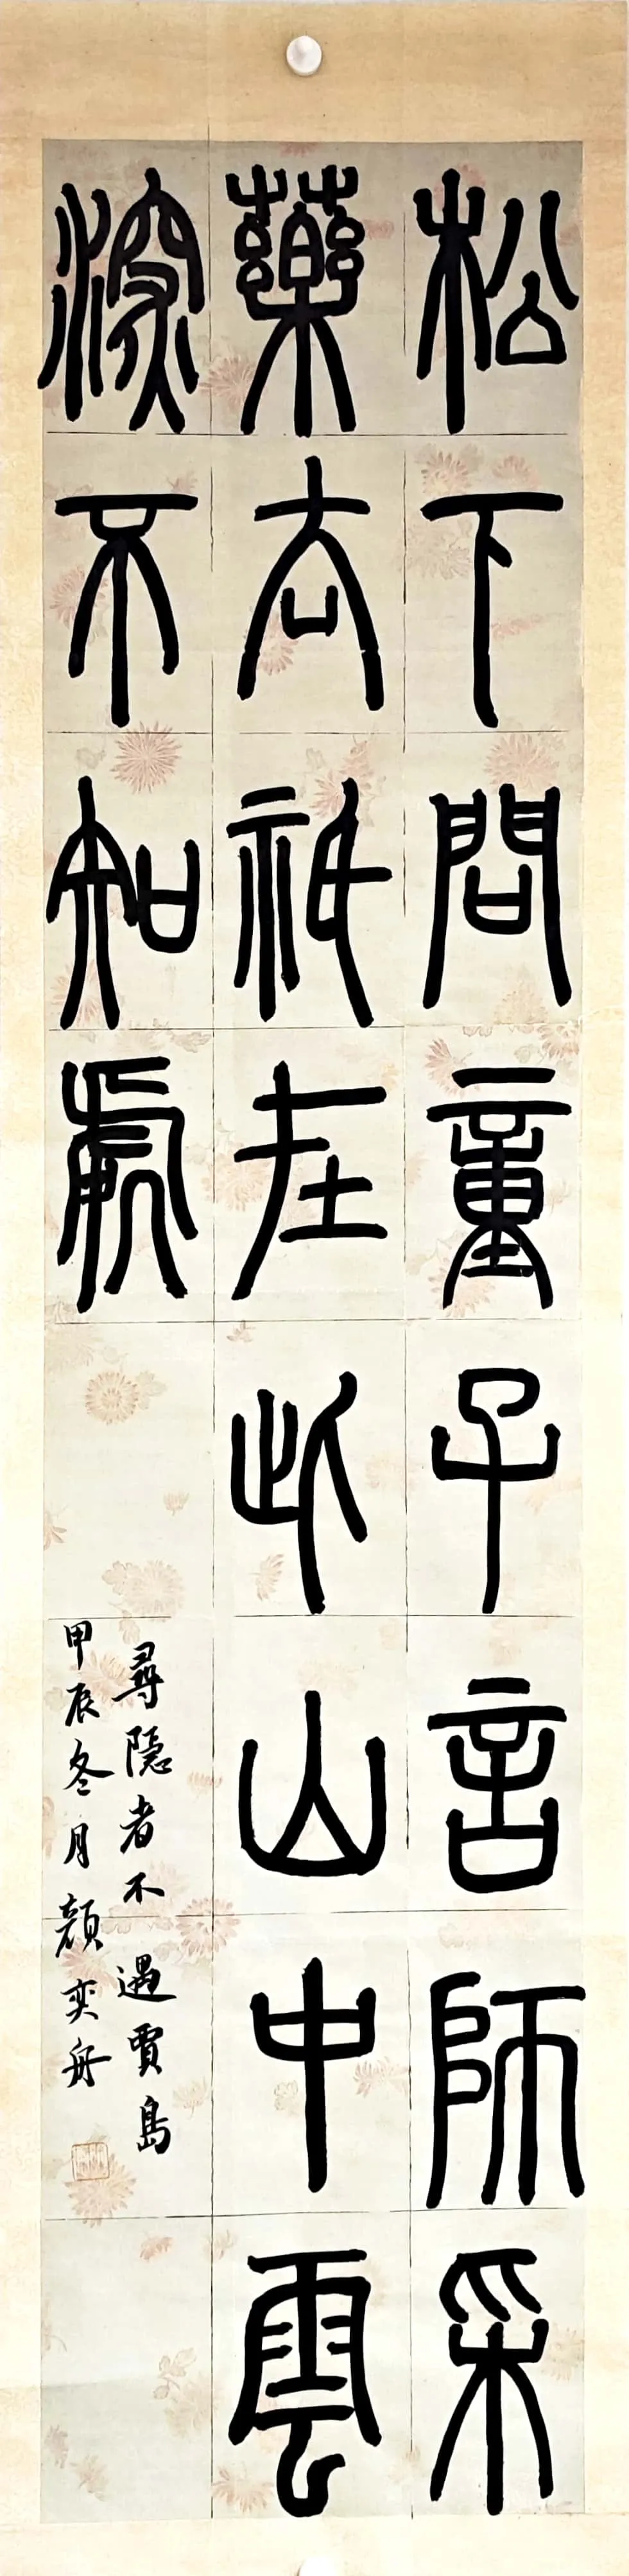 松下問童子言師采
藥去祇在此山中雲
深不知處
尋隱者不遇賈島
甲辰冬月顏奕舟